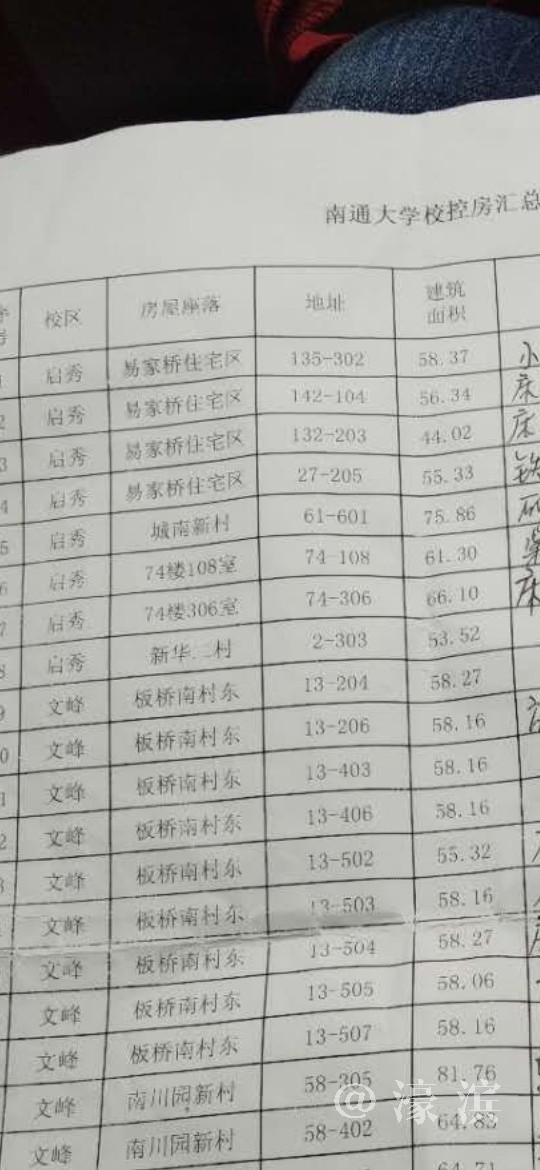 南通大学校控房汇总
号 校区 房屋座落 地址 建筑面积
1 启秀 易家桥住宅区 135-302 58.37 小
2 启秀 易家桥住宅区 142-104 56.34 床
3 启秀 易家桥住宅区 132-203 44.02 床
4 启秀 易家桥住宅区 27-205 55.33 铁
5 启秀 城南新村 61-601 75.86
6 启秀 74楼108室 74-108 61.30
7 启秀 74楼306室 74-306 66.10 床
8 启秀 新华二村 2-303 53.52
9 文峰 板桥南村东 13-204 58.27
0 文峰 板桥南村东 13-206 58.16
1 文峰 板桥南村东 13-403 58.16
2 文峰 板桥南村东 13-406 58.16
3 文峰 板桥南村东 13-502 55.32
文峰 板桥南村东 13-503 58.16
文峰 板桥南村东 13-504 58.27
文峰 板桥南村东 13-505 58.06
文峰 板桥南村东 13-507 58.16
文峰 南川园新村 58-305 81.76
文峰 南川园新村 58-402 64.83
64.71
@濠滨